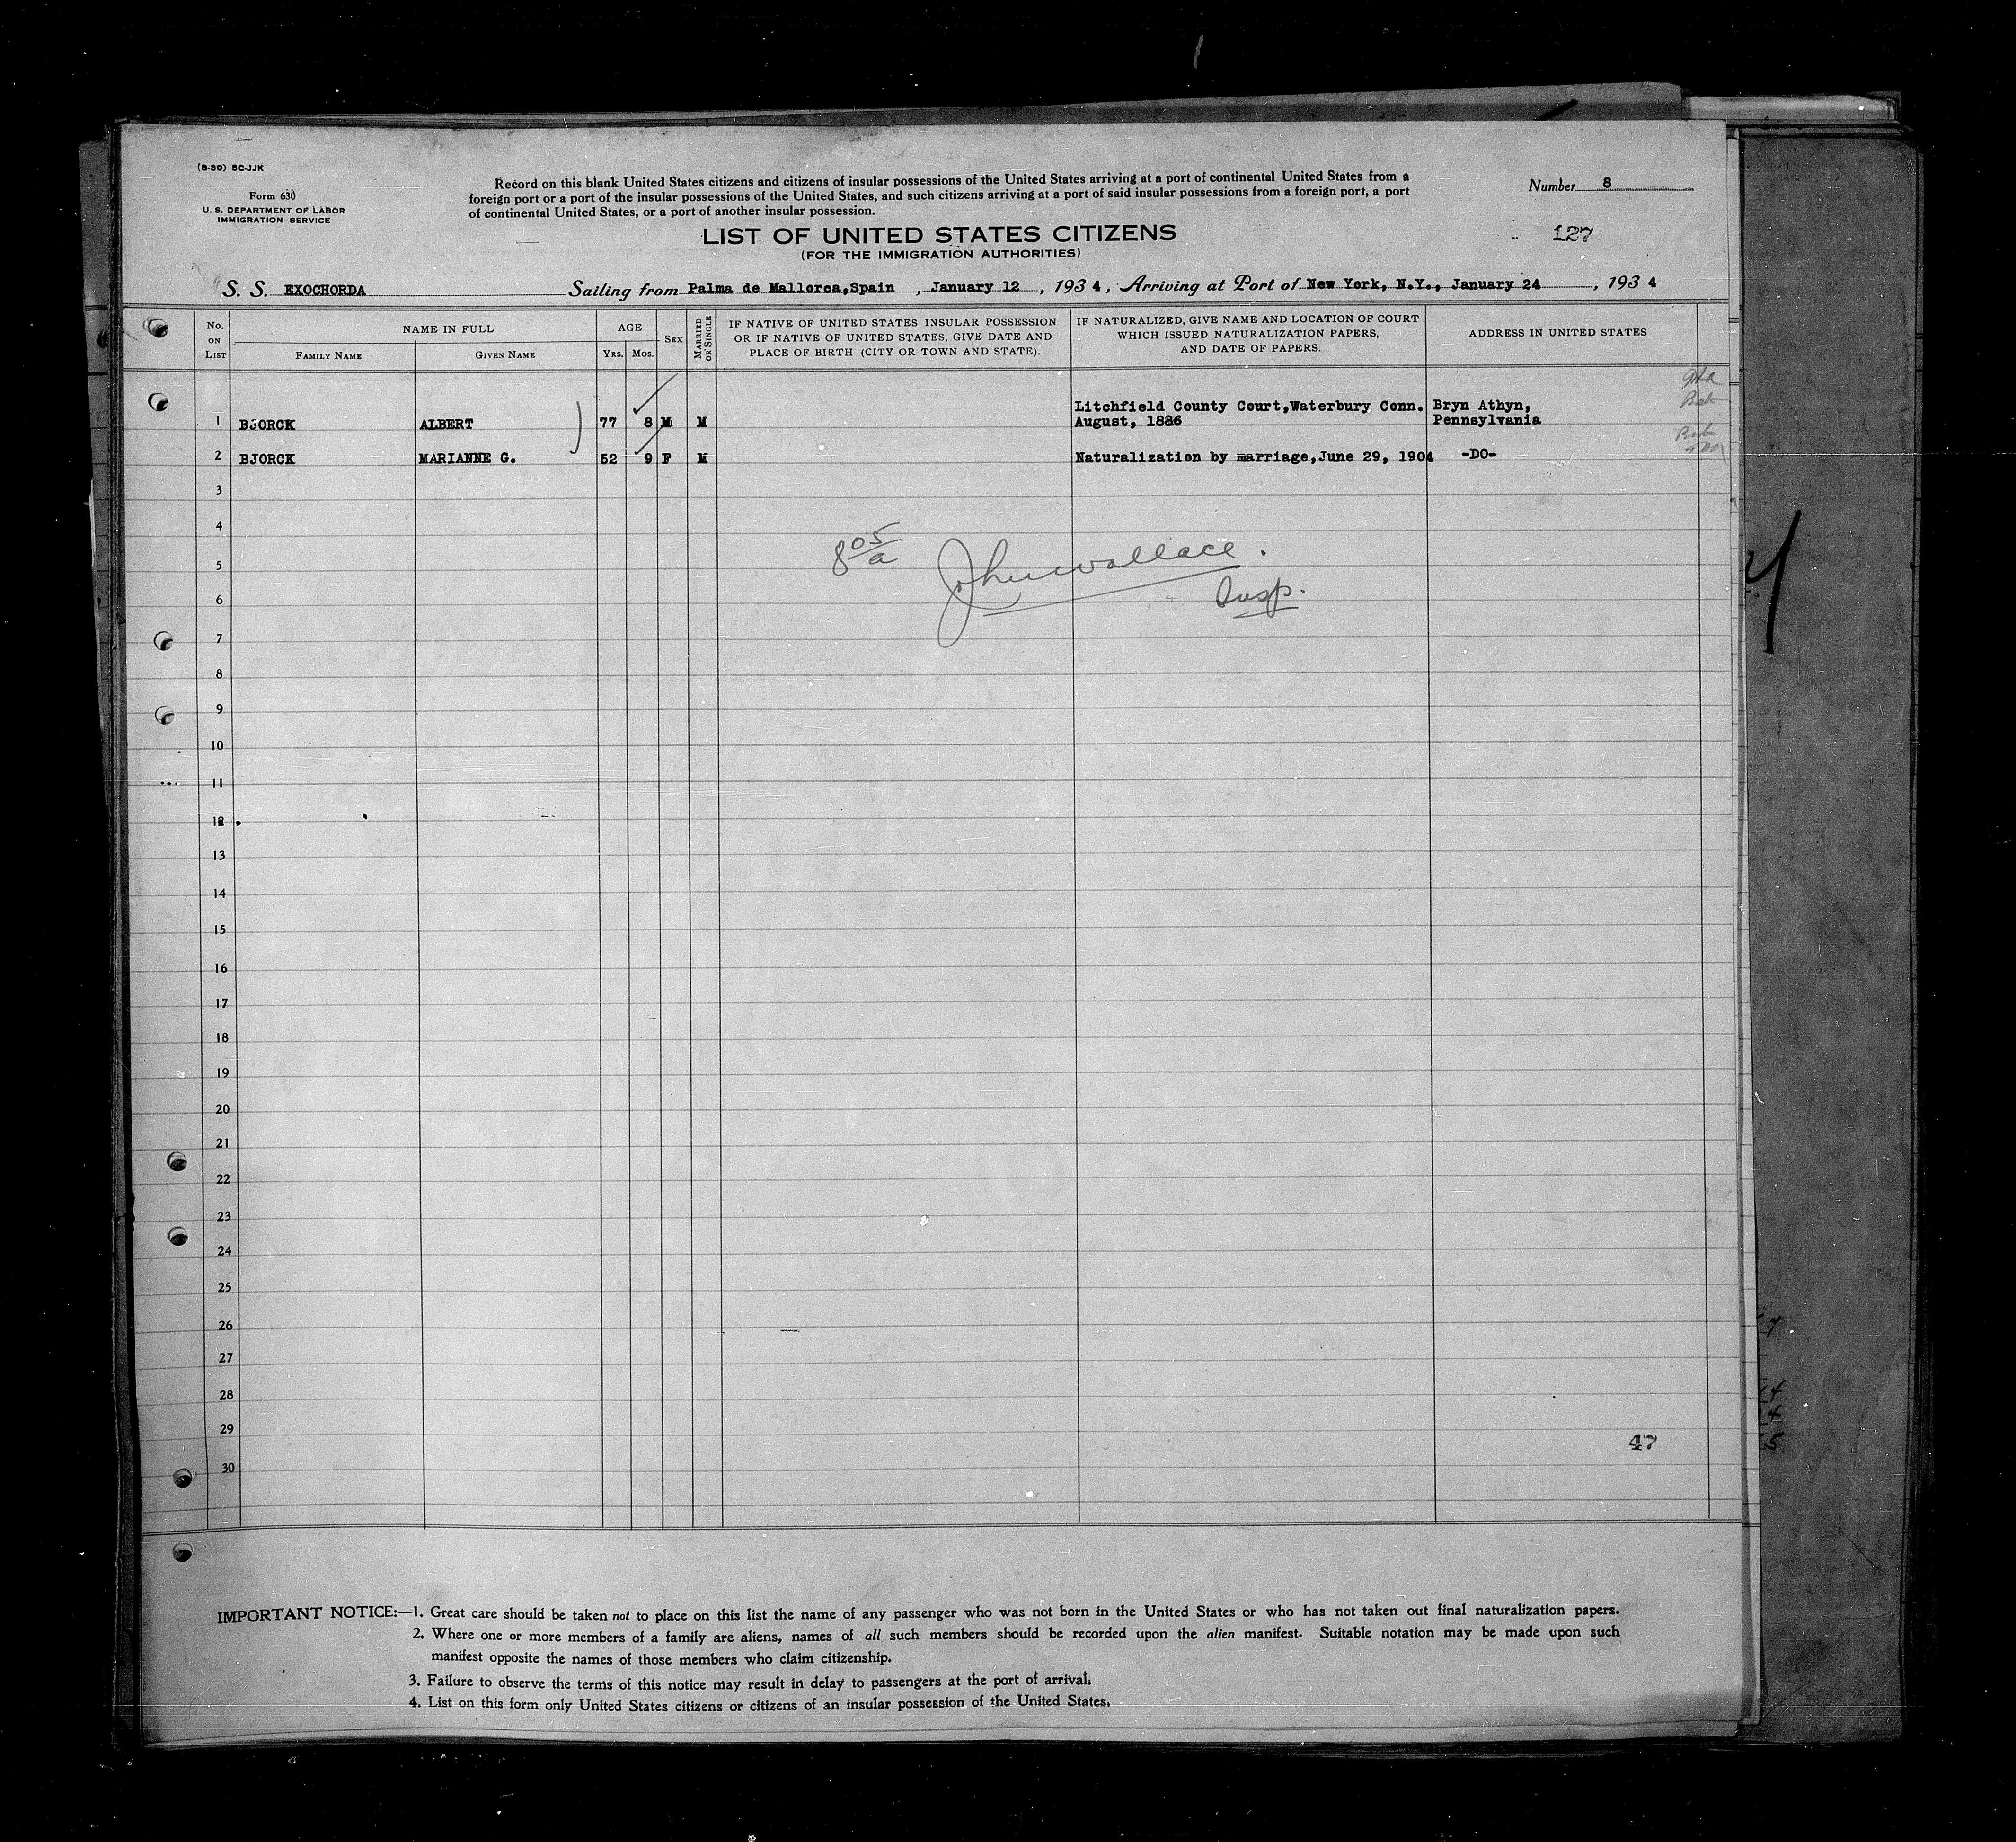 (8-30) BC-JJK
Form 630
U. S. DEPARTMENT OF LABOR
IMMIGRATION SERVICE
Record on this blank United States citizens and citizens of insular possessions of the United States arriving at a port of continental United States from a
foreign port or a port of the insular possessions of the United States, and such citizens arriving at a port of said insular possessions from a foreign port, a port
of continental United States, or a port of another insular possession.
Number 8
LIST OF UNITED STATES CITIZENS
(FOR THE IMMIGRATION AUTHORITIES)
127
S. S. EXOCHORDA Sailing from Palma de Mallorca,Spain , January 12 , 1934, Arriving at Port of New York, N.Y., January 24 , 1934
No. on List
NAME IN FULL
FAMILY NAME
GIVEN NAME
AGE
YRS. MOS.
SEX
MARRIED OR SINGLE
IF NATIVE OF UNITED STATES INSULAR POSSESSION
OR IF NATIVE OF UNITED STATES, GIVE DATE AND
PLACE OF BIRTH (CITY OR TOWN AND STATE).
IF NATURALIZED, GIVE NAME AND LOCATION OF COURT
WHICH ISSUED NATURALIZATION PAPERS,
AND DATE OF PAPERS.
ADDRESS IN UNITED STATES
Litchfield County Court,Waterbury Conn. Bryn Athyn,
1 BJORCK ALBERT 77 8 M M August, 1886 Pennsylvania
2 BJORCK MARIANNE G. 52 9 F M Naturalization by marriage,June 29, 1904 -DO-
3
4
8 05/a John Wallace.
5
Insp.
6
7
8
9
10
11
12
13
14
15
16
17
18
19
20
21
22
23
24
25
26
27
28
29
47
30
IMPORTANT NOTICE:—1. Great care should be taken not to place on this list the name of any passenger who was not born in the United States or who has not taken out final naturalization papers.
2. Where one or more members of a family are aliens, names of all such members should be recorded upon the alien manifest. Suitable notation may be made upon such
manifest opposite the names of those members who claim citizenship.
3. Failure to observe the terms of this notice may result in delay to passengers at the port of arrival.
4. List on this form only United States citizens or citizens of an insular possession of the United States.